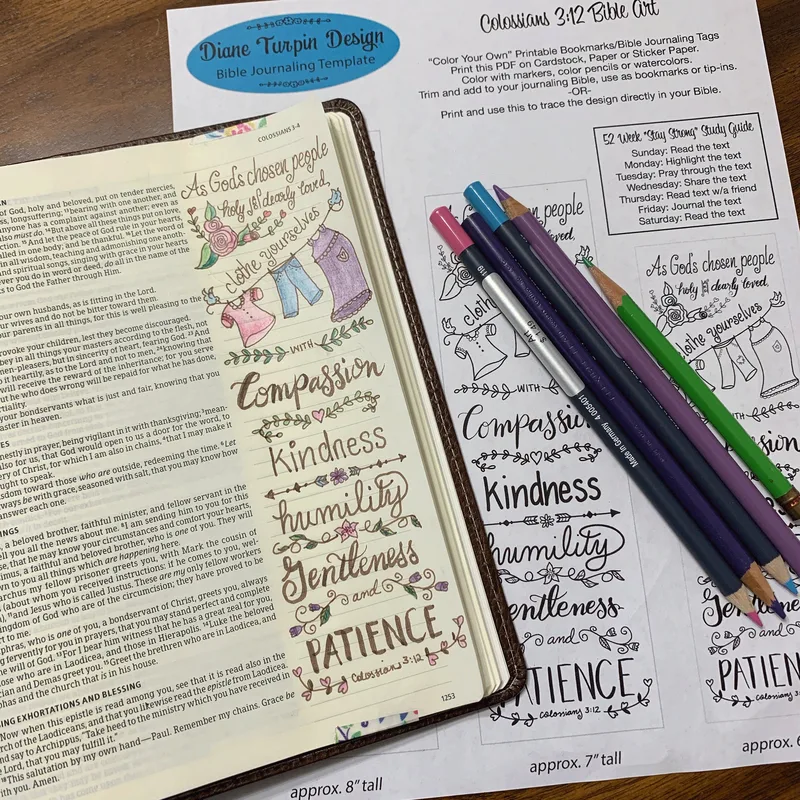 Diane Turpin Design
Bible Journaling Template
Colossians 3:12 Bible Art
"Color Your Own" Printable Bookmarks/Bible Journaling Tags
Print this PDF on Cardstock, Paper or Sticker Paper.
Color with markers, color pencils or watercolors.
Trim and add to your journaling Bible, use as bookmarks or tip-ins.
-OR-
Print and use this to trace the design directly in your Bible.
52 Week "Stay Strong" Study Guide
Sunday: Read the text
Monday: Highlight the text
Tuesday: Pray through the text
Wednesday: Share the text
Thursday: Read text w/a friend
Friday: Journal the text
Saturday: Read the text
COLOSSIANS 3-4
of God, holy and beloved, put on tender mercies,
longsuffering; 13bearing with one another, and
anyone has a complaint against another; even as
also must do. 14But above all these things put on love,
ction. 15And let the peace of God rule in your hearts,
called in one body; and be thankful. 16Let the word of
in all wisdom, teaching and admonishing one another
and spiritual songs, singing with grace in your hearts
ever you do in word or deed, do all in the name of the
ks to God the Father through Him.
your own husbands, as is fitting in the Lord.
ur wives and do not be bitter toward them.
ur parents in all things, for this is well pleasing to the
rovoke your children, lest they become discouraged.
bey in all things your masters according to the flesh, not
men-pleasers, but in sincerity of heart, fearing God. 23And
o it heartily, as to the Lord and not to men, 24knowing that
will receive the reward of the inheritance; for you serve
ut he who does wrong will be repaid for what he has done,
rtiality.
your bondservants what is just and fair, knowing that you
aster in heaven.
ES
nestly in prayer, being vigilant in it with thanksgiving; 3mean-
also for us, that God would open to us a door for the word, to
ery of Christ, for which I am also in chains, 4that I may make it
ought to speak.
isdom toward those who are outside, redeeming the time. 6Let
ways be with grace, seasoned with salt, that you may know how
nswer each one.
NGS
, a beloved brother, faithful minister, and fellow servant in the
tell you all the news about me. 8I am sending him to you for this
se, that he may know your circumstances and comfort your hearts,
us, a faithful and beloved brother, who is one of you. They will
wn to you all things which are happening here.
archus my fellow prisoner greets you, with Mark the cousin of
s (about whom you received instructions: if he comes to you, wel-
, 11and Jesus who is called Justus. These are my only fellow workers
ingdom of God who are of the circumcision; they have proved to be
rt to me.
phras, who is one of you, a bondservant of Christ, greets you, always
g fervently for you in prayers, that you may stand perfect and complete
he will of God. 13For I bear him witness that he has a great zeal for you,
ose who are in Laodicea, and those in Hierapolis. 14Luke the beloved
cian and Demas greet you. 15Greet the brethren who are in Laodicea, and
phas and the church that is in his house.
ING EXHORTATIONS AND BLESSING
Now when this epistle is read among you, see that it is read also in the
rch of the Laodiceans, and that you likewise read the epistle from Laodicea.
nd say to Archippus, "Take heed to the ministry which you have received in
Lord, that you may fulfill it."
18This salutation by my own hand—Paul. Remember my chains. Grace be
ith you. Amen.
1253
As God's chosen people
holy and dearly loved,
clothe yourselves
WITH
Compassion
Kindness
humility
Gentleness
and
PATIENCE
Colossians 3:12
people
loved,
cloth
WITH
Compassi
Kindness
humility
entleness
and
PATIENCE
Colossians 3:12
As God's chosen people
holy and dearly loved,
clothe yourselves
WITH
and
PATIEN
Colossians 3:12
Made in Germany 4 005401
approx. 8" tall
approx. 7" tall
approx. 6